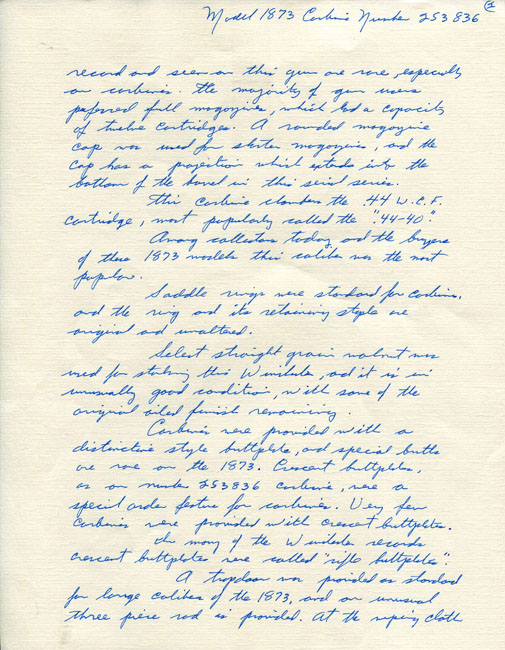 Model 1873 Carbine Number 253836
record and seen on this gun are rare, especially
on carbines. The majority of gun users
preferred full magazines, which had a capacity
of twelve cartridges. A rounded magazine
cap was used for shorter magazines, and the
cap has a projection which extends into the
bottom of the barrel in this serial series.
This Carbine chambers the .44 W.C.F.
cartridge, most popularly called the ".44-40".
Among collectors today and the buyers
of these 1873 models this caliber was the most
popular.
Saddle rings were standard for carbines,
and the ring and its retaining staple are
original and unaltered.
Select straight grain walnut was
used for stocking this Winchester, and it is in
unusually good condition, with some of the
original oiled finish remaining.
Carbines were provided with a
distinctive style buttplate, and special butts
are rare on the 1873. Crescent buttplates,
as on number 253836 carbine, were a
special order feature for carbines. Very few
Carbines were provided with crescent buttplates.
In many of the Winchester records
crescent buttplates were called "rifle buttplates".
A trapdoor was provided as standard
for large calibers of the 1873, and an unusual
three piece rod is provided. At the wiping cloth